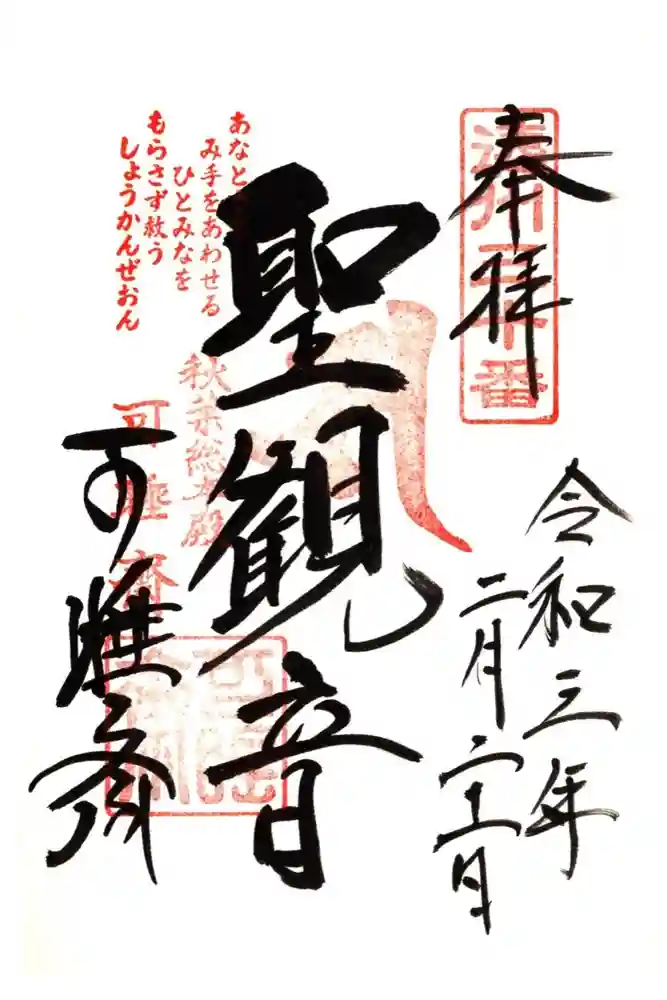 奉拝
令和三年
二月
聖観音
あなと
み手をあわせる
ひとみなを
もらさず救う
しょうかんぜおん
秋葉総本殿
可睡斎
可睡斎